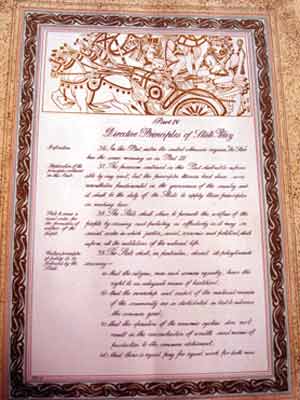 Part IV
Directive Principles of State Policy
Definition.
36. In this Part, unless the context otherwise requires, "the State"
has the same meaning as in Part III.
Application of the
principles contained
in this Part.
37. The provisions contained in this Part shall not be enforce-
able by any court, but the principles therein laid down are
nevertheless fundamental in the governance of the country and
it shall be the duty of the State to apply these principles
in making laws.
State to secure a
social order for
the promotion of
welfare of the
people.
38. The State shall strive to promote the welfare of the
people by securing and protecting as effectively as it may a
social order in which justice, social, economic and political, shall
inform all the institutions of the national life.
Certain principles
of policy to be
followed by the
State.
39. The State shall, in particular, direct its policy towards
securing—
(a) that the citizens, men and women equally, have the
right to an adequate means of livelihood;
(b) that the ownership and control of the material resources
of the community are so distributed as best to subserve
the common good;
(c) that the operation of the economic system does not
result in the concentration of wealth and means of
production to the common detriment;
(d) that there is equal pay for equal work for both men